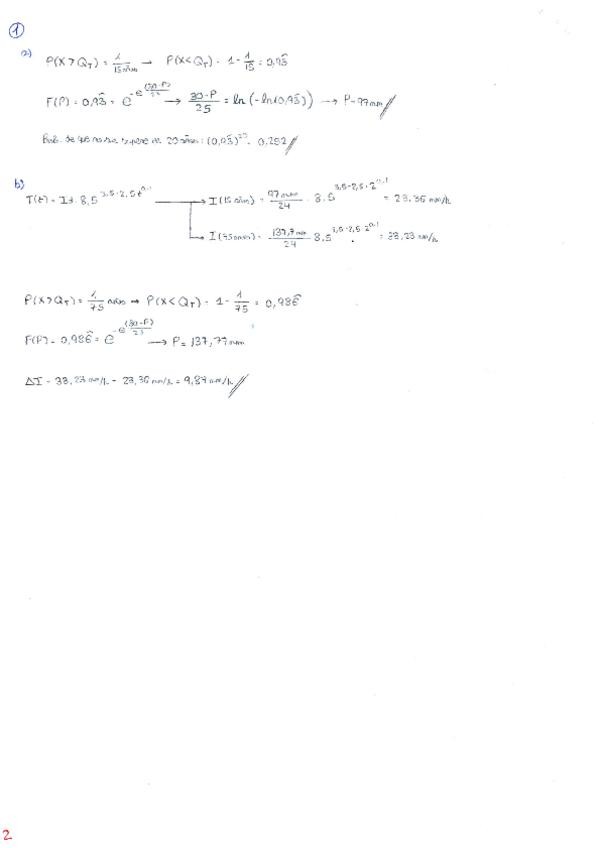 1
a)
P(X>Q_T) = 1/15 años → P(X<Q_T) = 1 - 1/15 = 0,93̂
F(P) = 0,93̂ = e^{-e^{(30-P)/25}} → (30-P)/25 = ln(-ln(0,93̂)) → P=97mm //
Prob. de que no se supere en 20 años: (0,93̂)^20 = 0,252 //
b)
I(t) = Id · 8,5^{3,5-2,5t^{0,1}} → I(15 años) = 97mm/24 · 8,5^{3,5-2,5·2^{0,1}} = 23,36 mm/h
→ I(75años) = 137,7mm/24 8,5^{3,5-2,5·2^{0,1}} = 33,23 mm/h
P(X>Q_T) = 1/75 años → P(X<Q_T) = 1 - 1/75 = 0,986̂
F(P) = 0,986̂ = e^{-e^{(30-P)/25}} → P = 137,77mm
ΔI = 33,23 mm/h - 23,36 mm/h = 9,87 mm/h //
2